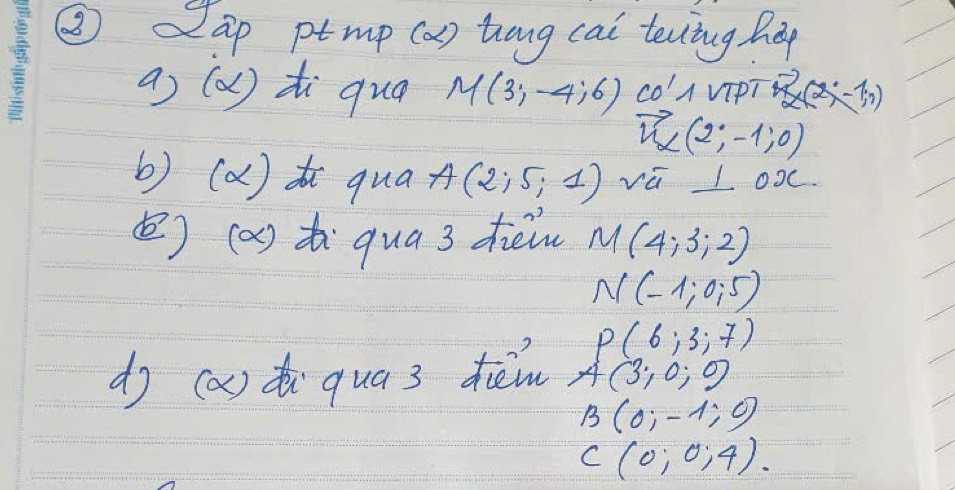 ② Lập pt mp (α) trong các trường hợp
a) (α) đi qua M(3; -4; 6) có 1 VTPT
n⃗α (2; -1; 0)
b) (α) đi qua A(2; 5; 1) và ⊥ ox.
c) (α) đi qua 3 điểm M(4; 3; 2)
N(-1; 0; 5)
P(6; 3; 7)
d) (α) đi qua 3 điểm A(3; 0; 0)
B(0; -1; 0)
C(0; 0; 4).